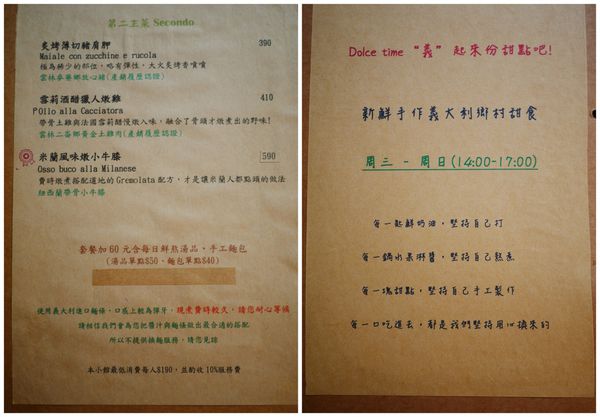 第二主菜 Secondo
炙烤薄切豬肩胛 390
Maiale con zucchine e rucola
極為稀少的部位，略有彈性，大火炙烤香噴噴
雲林麥寮御放心豬(產銷履歷認證)
雪莉酒醋獵人燉雞 410
Pollo alla Cacciatora
帶骨土雞與法國雪莉醋慢燉入味，融合了骨頭才燉煮出的野味!
雲林二崙鄉黃金土雞肉(產銷履歷認證)
米蘭風味燉小牛膝 590
Osso buco alla Milanese
費時燉煮搭配道地的Gremolata配方，才是讓米蘭人都點頭的做法
紐西蘭帶骨小牛膝
套餐加60元含每日鮮熬湯品、手工麵包
(湯品單點$50、麵包單點$40)
使用義大利進口麵條，口感上較為彈牙，現煮費時較久，請您耐心等候
請相信我們會為您把醬汁與麵條做出最合適的搭配
所以不提供換麵服務，請您見諒
本小館最低消費每人$190，並酌收10%服務費
Dolce time “義” 起來份甜點吧!
新鮮手作義大利鄉村甜食
周三 - 周日(14:00-17:00)
每一匙鮮奶油，堅持自己打
每一鍋水果淋醬，堅持自己熬煮
每一塊甜點，堅持自己手工製作
每一口吃進去，都是我們堅持用心換來的